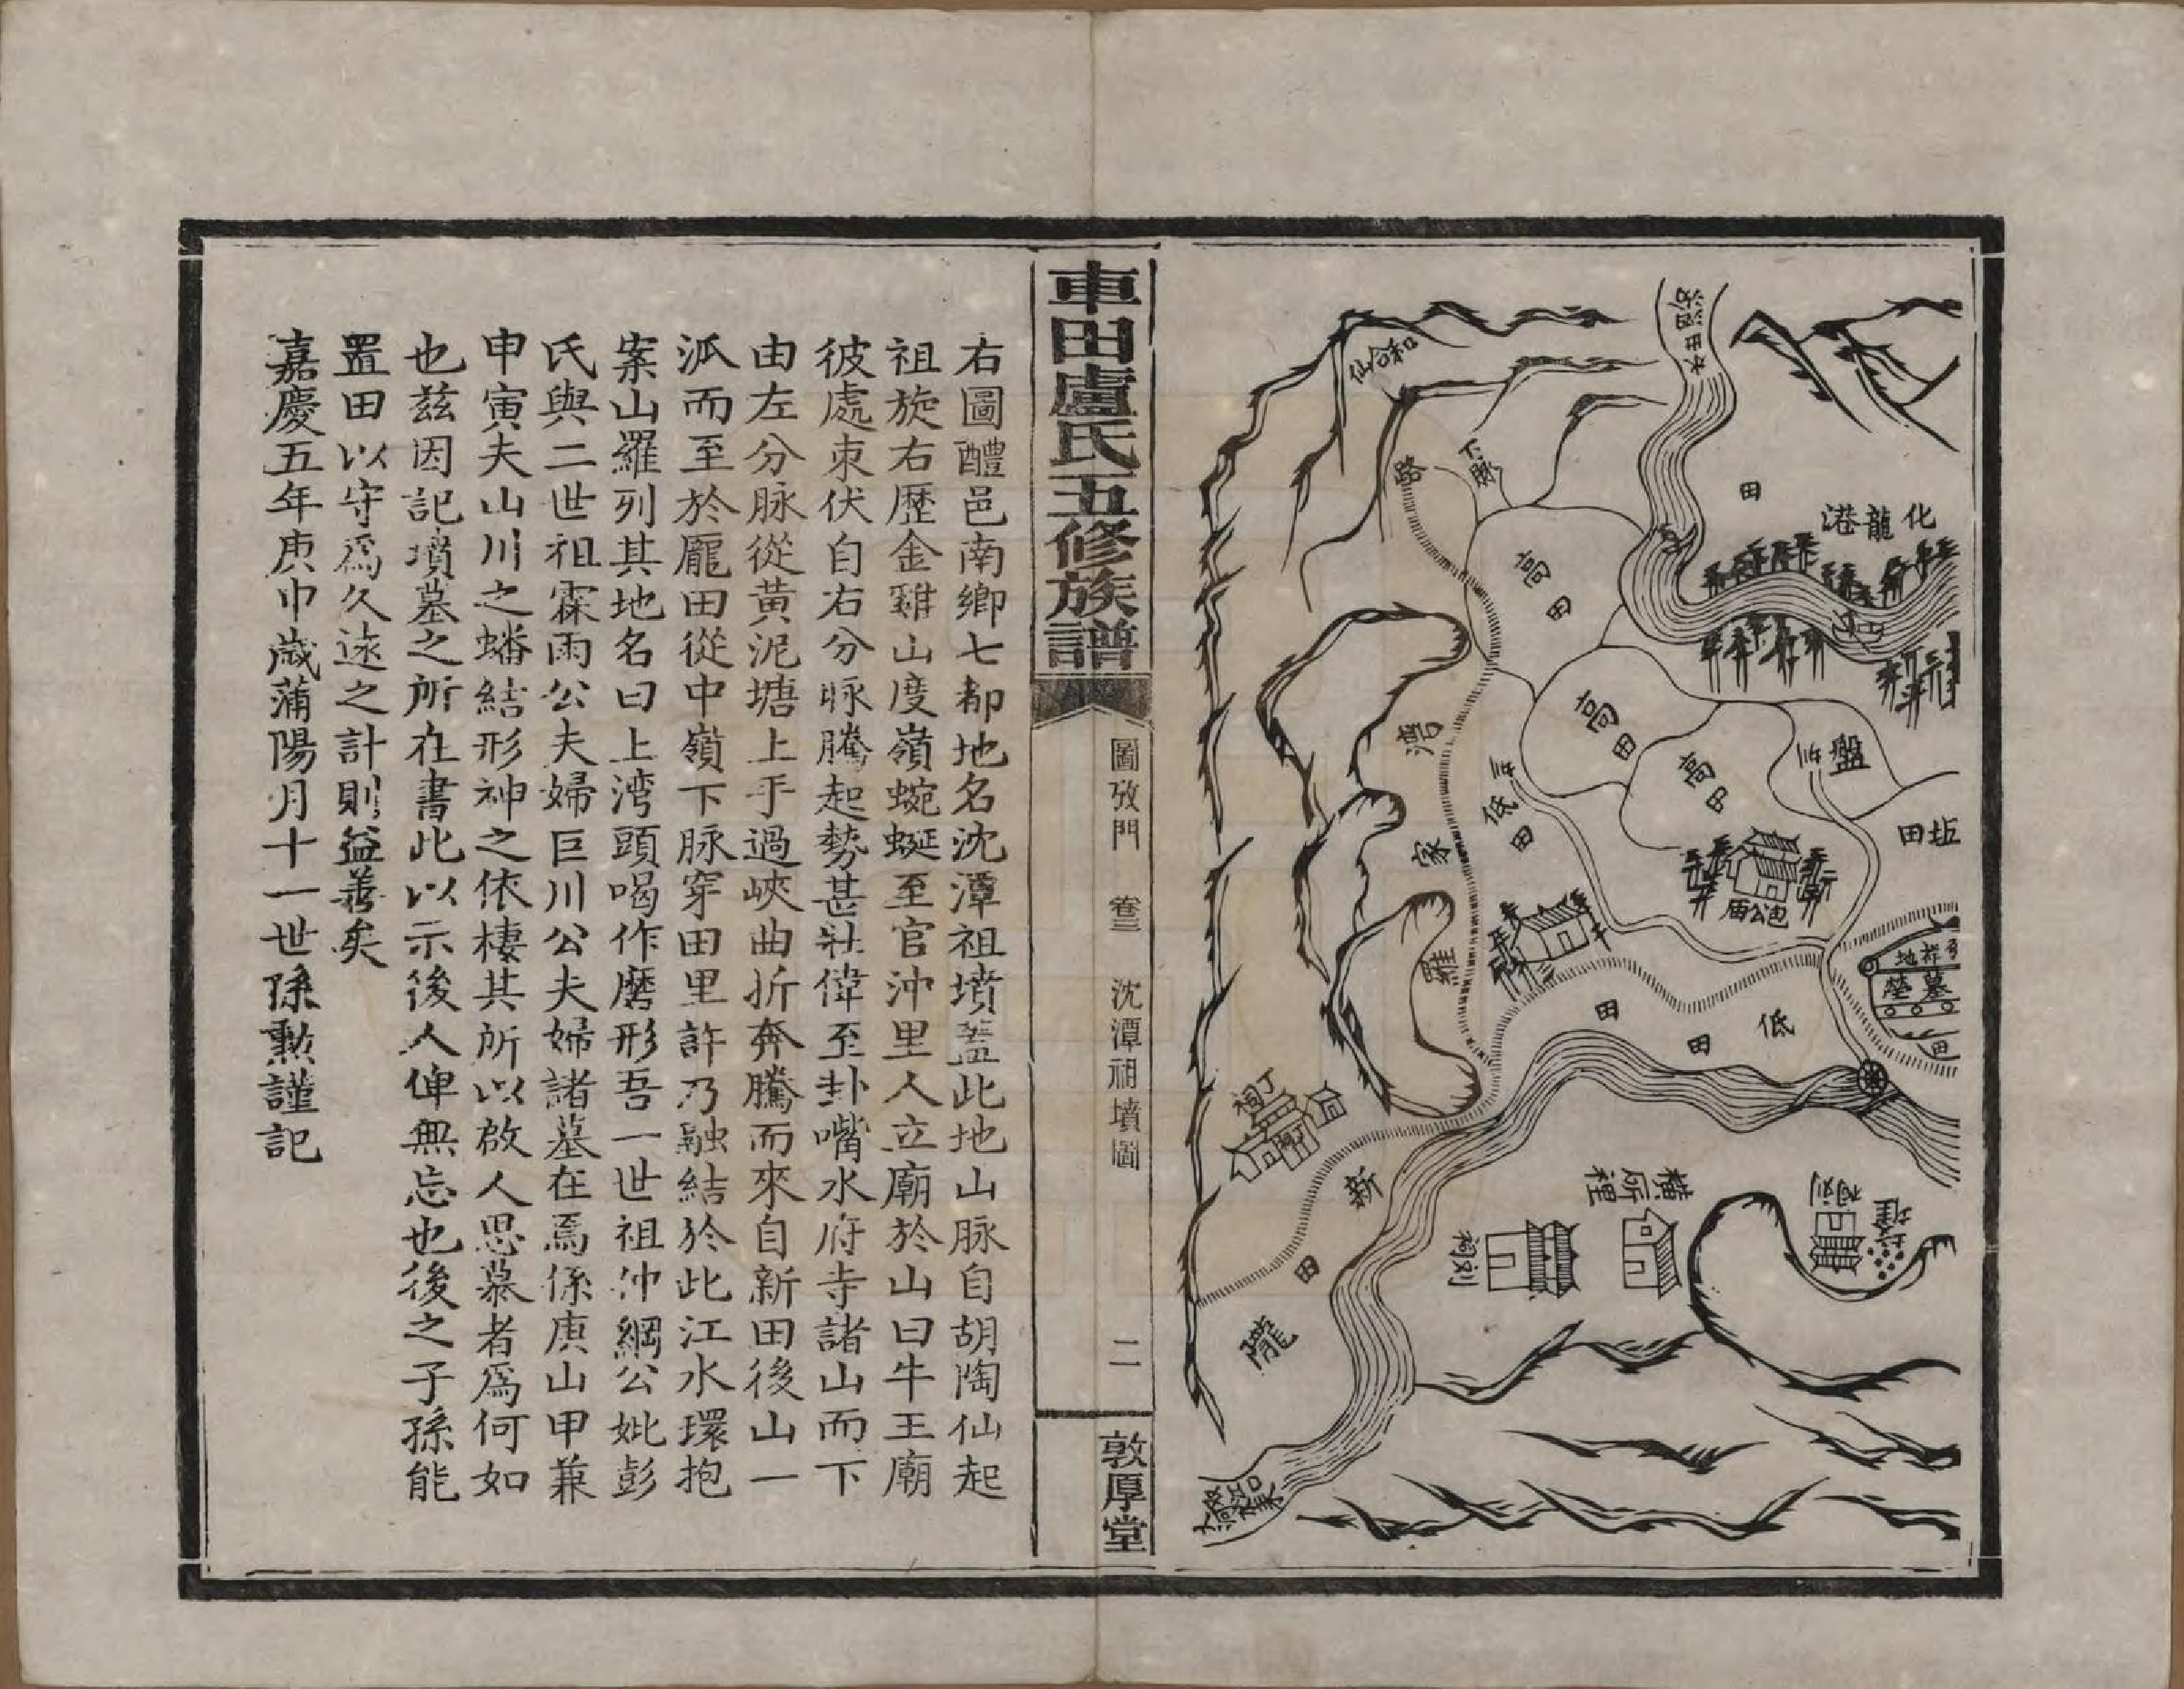 沿田水
和合仙
下脉
路
田
化龍港
高田
高田
高田
盤
田坵
低田
包公庙
羅家
墓
低
田
田
丁祠
新田隴
横
裡
車田盧氏五修族譜
圖攷門
卷三
沈潭祖墳圖
二
敦厚堂
右圖醴邑南鄉七都地名沈潭祖墳蓋此地山脉自胡陶仙起
祖旋右歷金雞山度嶺蜿蜒至官沖里人立廟於山曰牛王廟
彼處束伏自右分脉騰起勢甚壯偉至卦嘴水府寺諸山而下
由左分脉從黃泥塘上手過峽曲折奔騰而來自新田後山一
泒而至於龎田從中嶺下脉穿田里許乃融結於此江水環抱
案山羅列其地名曰上湾頭喝作磨形吾一世祖仲綱公妣彭
氏與二世祖霖雨公夫婦巨川公夫婦諸墓在焉係庚山甲兼
申寅夫山川之蟠結形神之依棲其所以啟人思慕者爲何如
也茲因記墳墓之所在書此以示後人俾無忘也後之子孫能
置田以守爲久遠之計則益善矣
嘉慶五年庚申歲蒲陽月十一世孫勲謹記